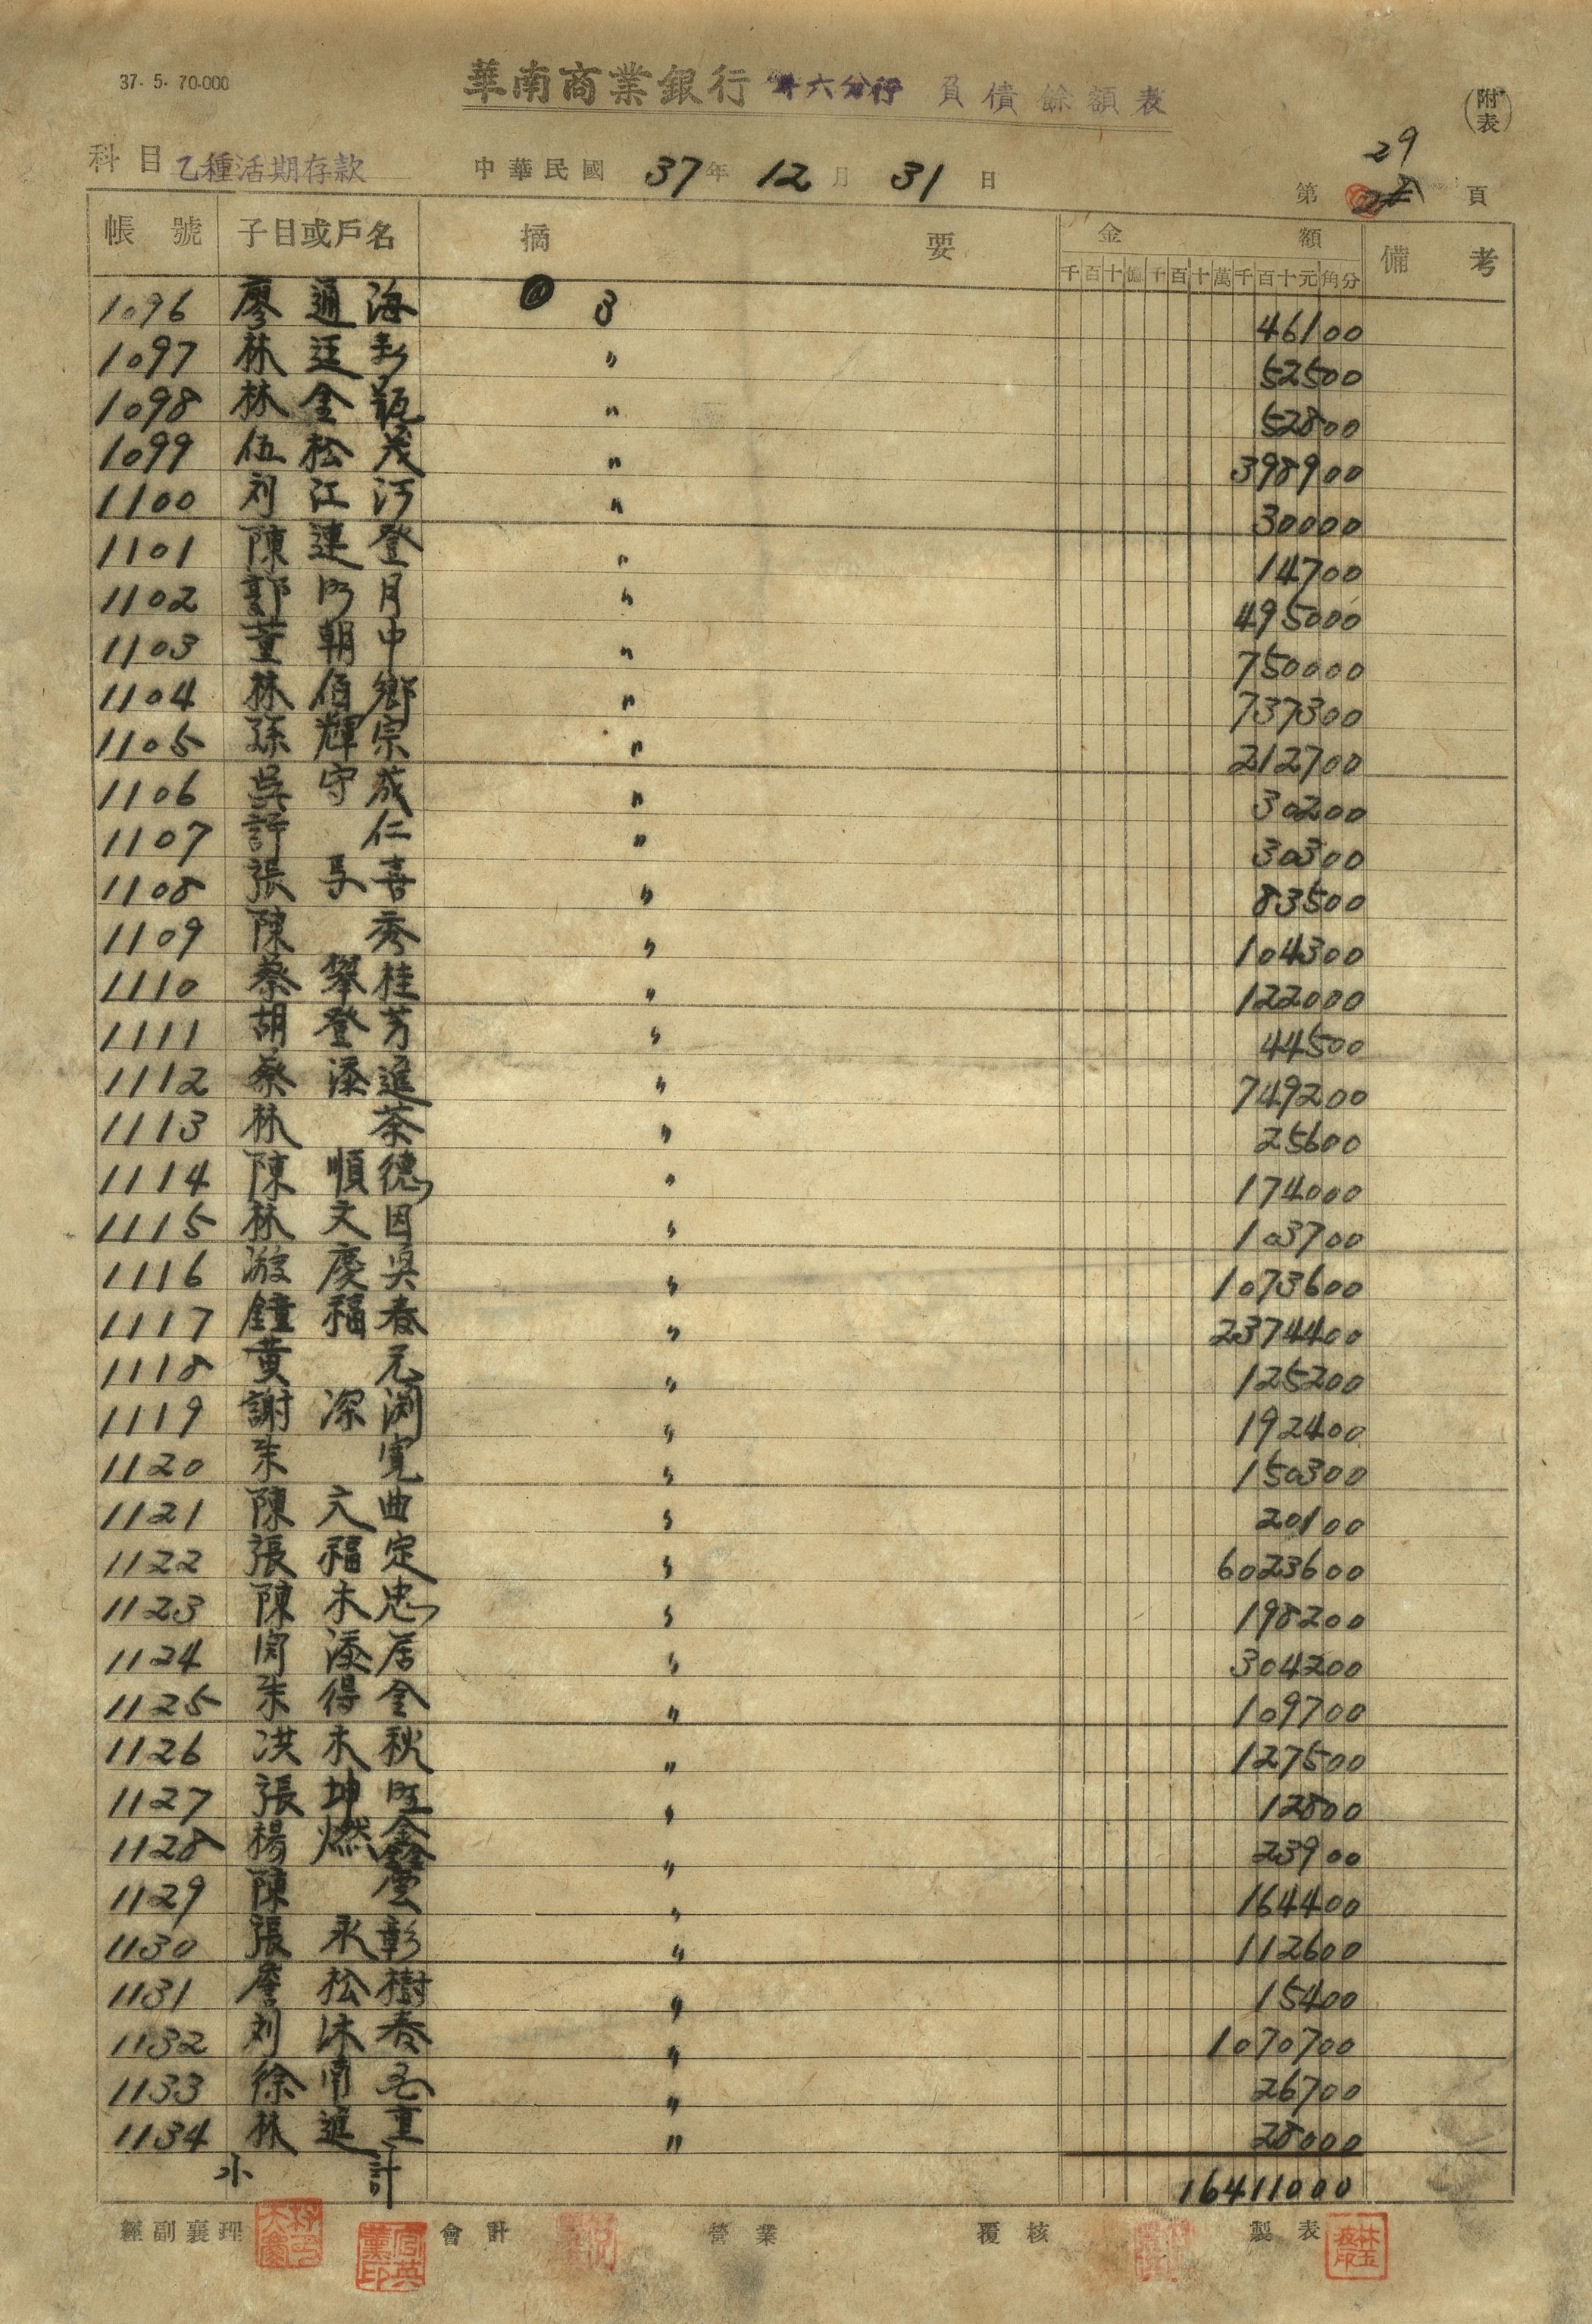 37. 5. 70.000
華南商業銀行 斗六分行 負債餘額表
(附表)
科目 乙種活期存款 中華民國 37年 12月 31日 第 29 頁
帳號 子目或戶名 摘要 金額 備考
千百十億千百十萬千百十元角分
1096 廖通海 @ 3 46100
1097 林廷彩 〃 52500
1098 林金瓶 〃 52800
1099 伍松茂 〃 398900
1100 刘江河 〃 30000
1101 陳連登 〃 14700
1102 郭明月 〃 495000
1103 董朝中 〃 750000
1104 林佰鄉 〃 737300
1105 孫輝宗 〃 212700
1106 吳守成 〃 30200
1107 許仁 〃 30300
1108 張喜 〃 83500
1109 陳秀 〃 104300
1110 蔡攀桂 〃 122000
1111 胡登芳 〃 44500
1112 蔡添進 〃 749200
1113 林茶 〃 25600
1114 陳順德 〃 174000
1115 林文因 〃 103700
1116 慶 〃 1073600
1117 鐘福春 〃 2374400
1118 黃元 〃 125200
1119 謝深渊 〃 192400
1120 朱寬 〃 150300
1121 陳文曲 〃 20100
1122 張福定 〃 6023600
1123 陳木忠 〃 198200
1124 添居 〃 304200
1125 朱得金 〃 109700
1126 洪木秋 〃 127500
1127 張坤旺 〃 12800
1128 楊燃鑫 〃 23900
1129 陳雲 〃 164400
1130 張永彰 〃 112600
1131 詹松樹 〃 15400
1132 刘沐春 〃 1070700
1133 徐南 〃 26700
1134 林進重 〃 28000
小計 16411000
經副襄理 會計 營業 覆核 製表